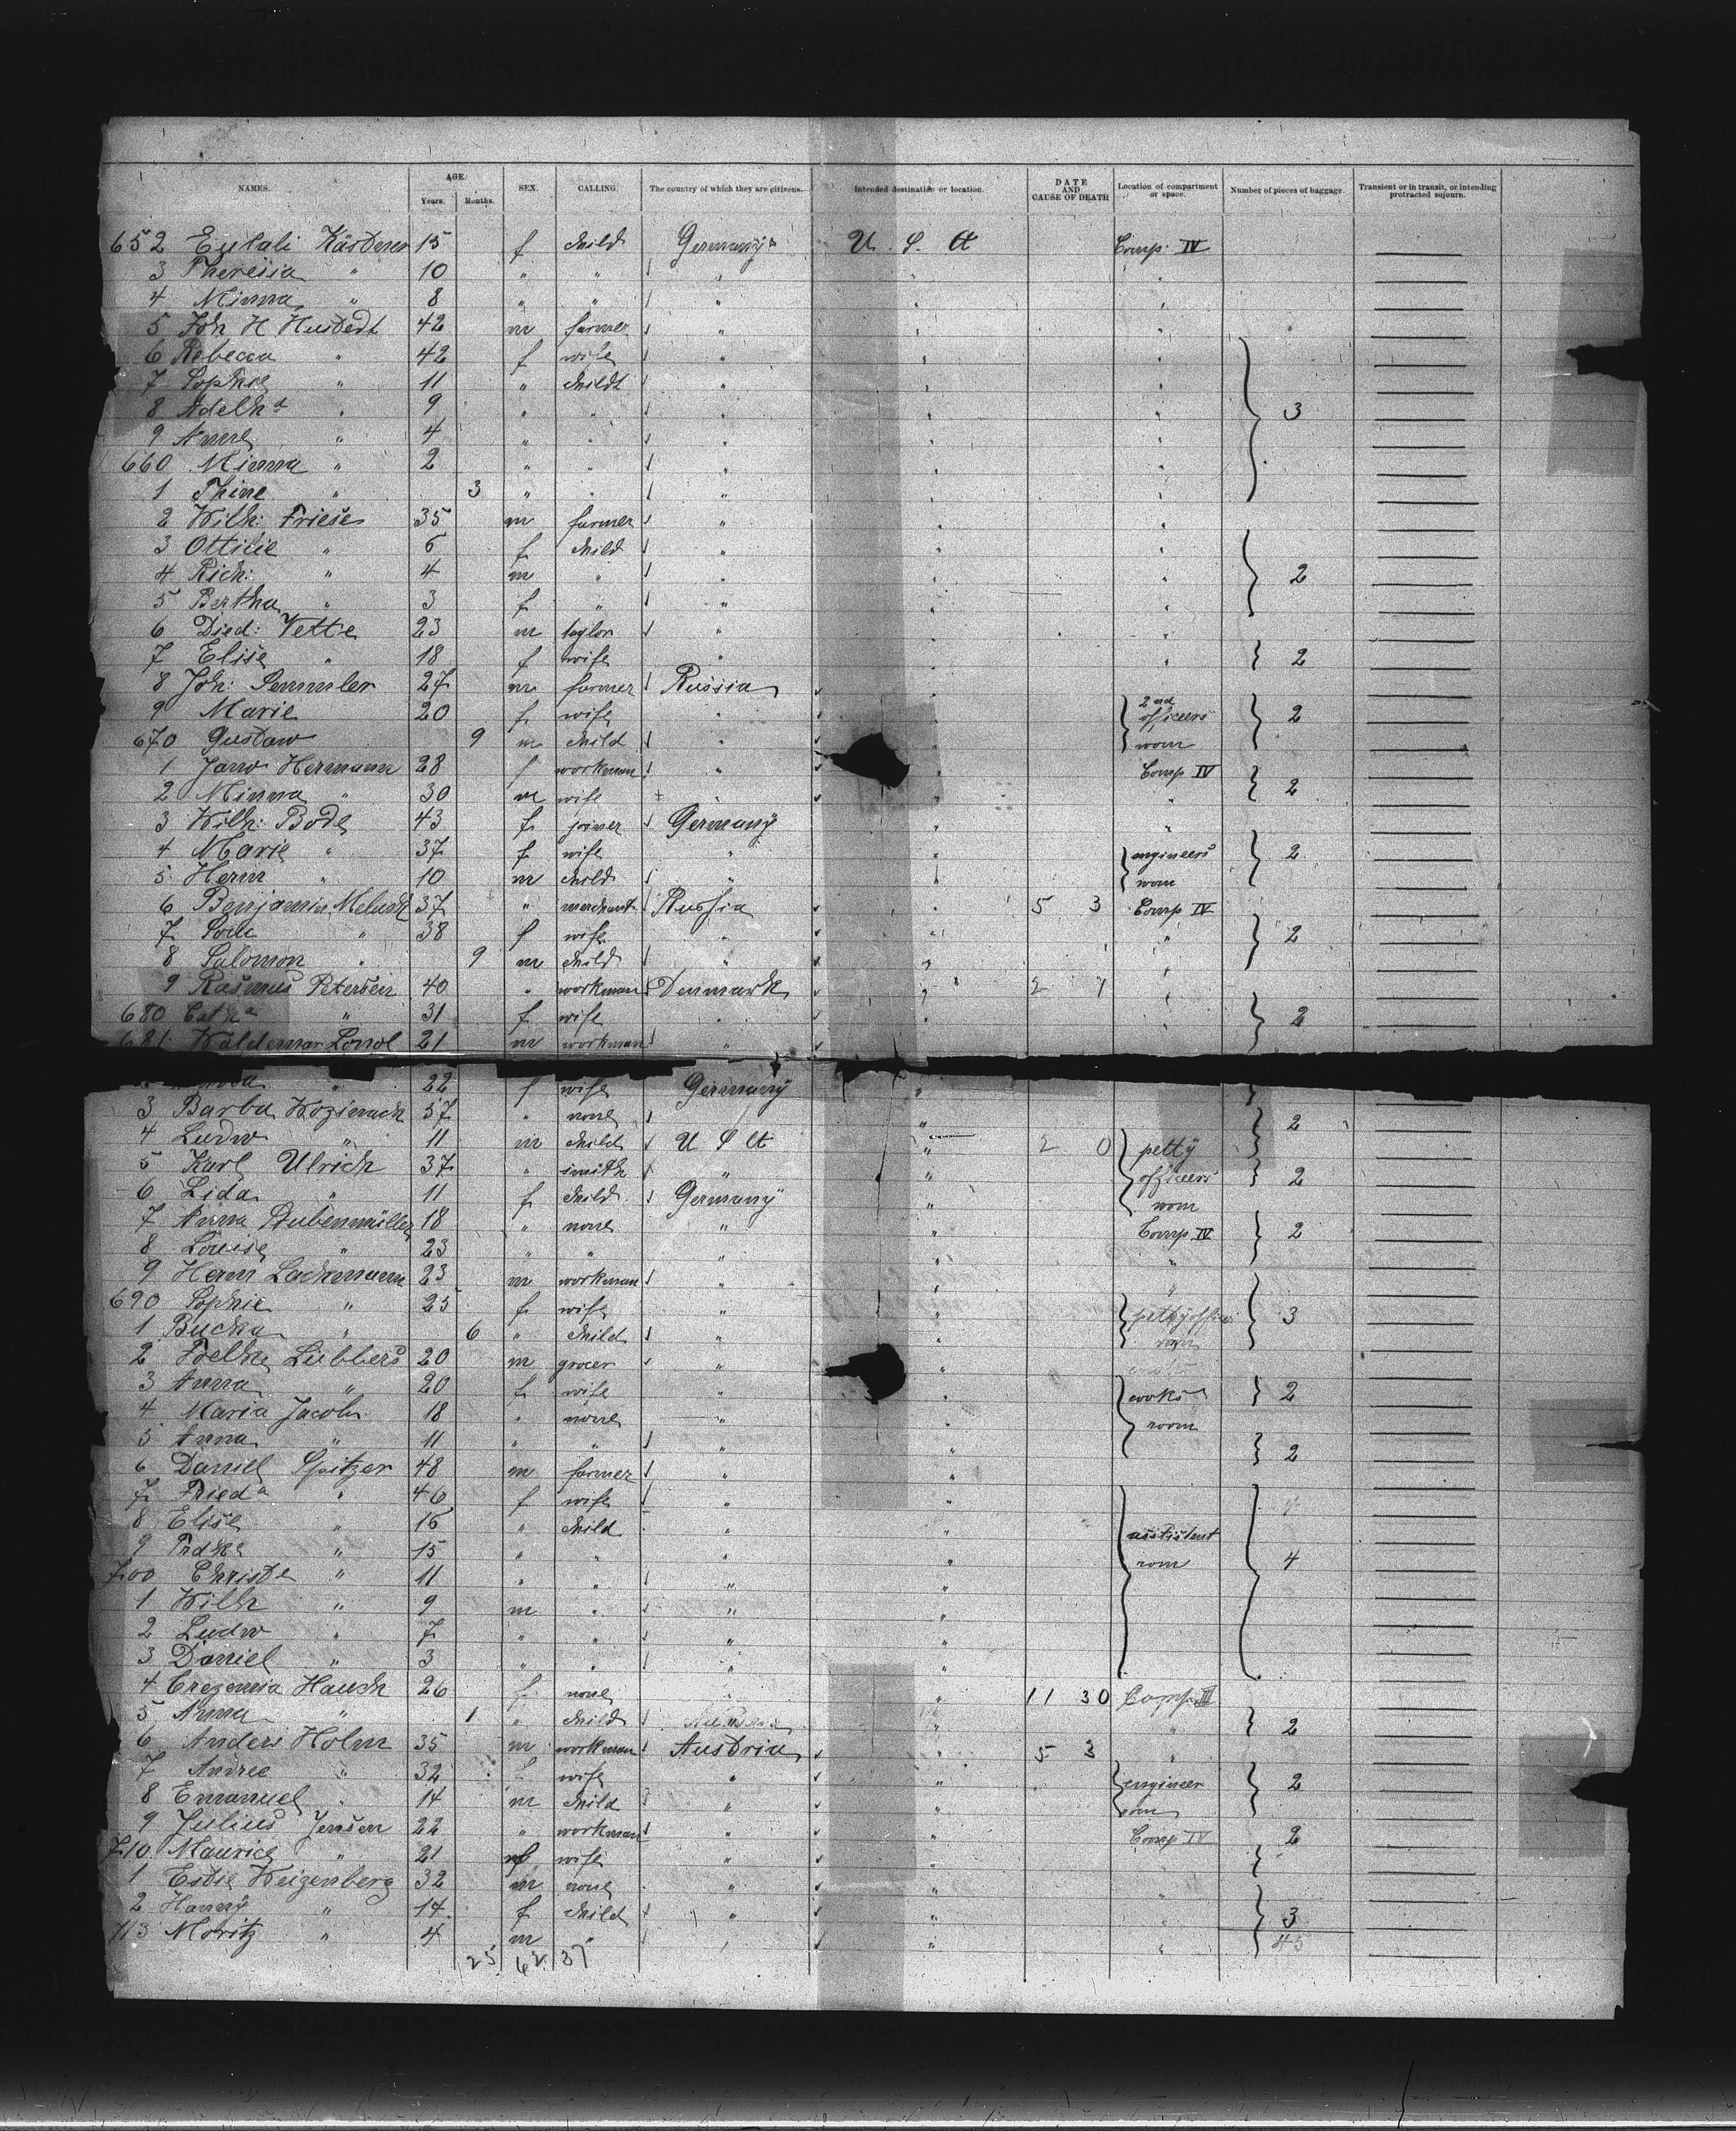 NAMES. AGE. Years. Months. SEX. CALLING. The country of which they are citizens. Intended destination or location. DATE AND CAUSE OF DEATH Location of compartment or space. Number of pieces of baggage. Transient or in transit, or intending protracted sojourn.
652 Eulali Kästner 15 f child Germany U. S. A Comp. IV
3 Theresia " 10 " " "
4 Minna " 8 " " "
5 Joh H Hustedt 42 m farmer "
6 Rebecca " 42 f wife "
7 Sophie " 11 " child "
8 Adelhd " 9 " " " 3
9 Anna " 4 " " "
660 Minna " 2 " " "
1 Thine " 3 " " "
2 Wilh: Friese 35 m farmer "
3 Ottilie " 6 f child "
4 Rich: " 4 m " " 2
5 Bertha " 3 f " "
6 Died: Vette 23 m taylor "
7 Elise " 18 f wife " 2
8 Joh: Semmler 27 m farmer Russia
9 Marie 20 f wife " 2nd officers 2
670 Gustav 9 m child " room
1 Hermann 28 f workman " Comp IV
2 Minna " 30 m wife " " 2
3 Wilh: Bode 43 f joiner Germany "
4 Marie " 37 f wife " engineers 2
5 Herm " 10 m child " room
6 Benjamin 37 " merchant Russia 5 3 Comp IV
7 " 38 f wife " " 2
8 Salomon " 9 m child " "
9 Rasmus Petersen 40 " workman Denmark 2 "
680 Catha " 31 f wife " 2
681 Waldemar 21 m workman "
" 22 f wife Germany "
3 Barba 57 " none " 2
4 Ludw " 11 m child U S A " 2 0 petty
5 Karl Ulrich 37 " smith " " officers 2
6 Lida " 11 f child Germany " room
7 Anna Stubenmüller 18 " none " " Comp IV 2
8 Louise " 23 " " " "
9 Herm Lachmann 23 m workman " "
690 Sophie " 25 f wife " " petty officer 3
1 " 6 " child " " room
2 Lübbers 20 m grocer " "
3 Anna " 20 f wife " " cooks 2
4 Maria Jacobs 18 " none " " room
5 Anna " 11 " " " " 2
6 Daniel Spitzer 48 m farmer " "
7 Frieda " 46 f wife " "
8 Elise " 16 " child " " assistent
9 " 15 " " " " room 4
700 Christe " 11 " " " "
1 Wilh " 9 m " " "
2 Ludw " 7 " " " "
3 Daniel " 3 " " " "
4 Hauch 26 f none " " 11 30 Comp III
5 Anna " 1 " child " " 2
6 Anders Holm 35 m workman Austria " 5 3 "
7 Andree " 32 wife " " engineer 2
8 Emanuel " 14 m child " " room
9 Julius Jensen 22 " workman " " Comp IV 2
710 Maurice " 21 f wife " "
1 Weizenberg 32 m none " "
2 Hanny " 14 f child " " 3
713 Moritz " 4 m " " " 45
25 62 37